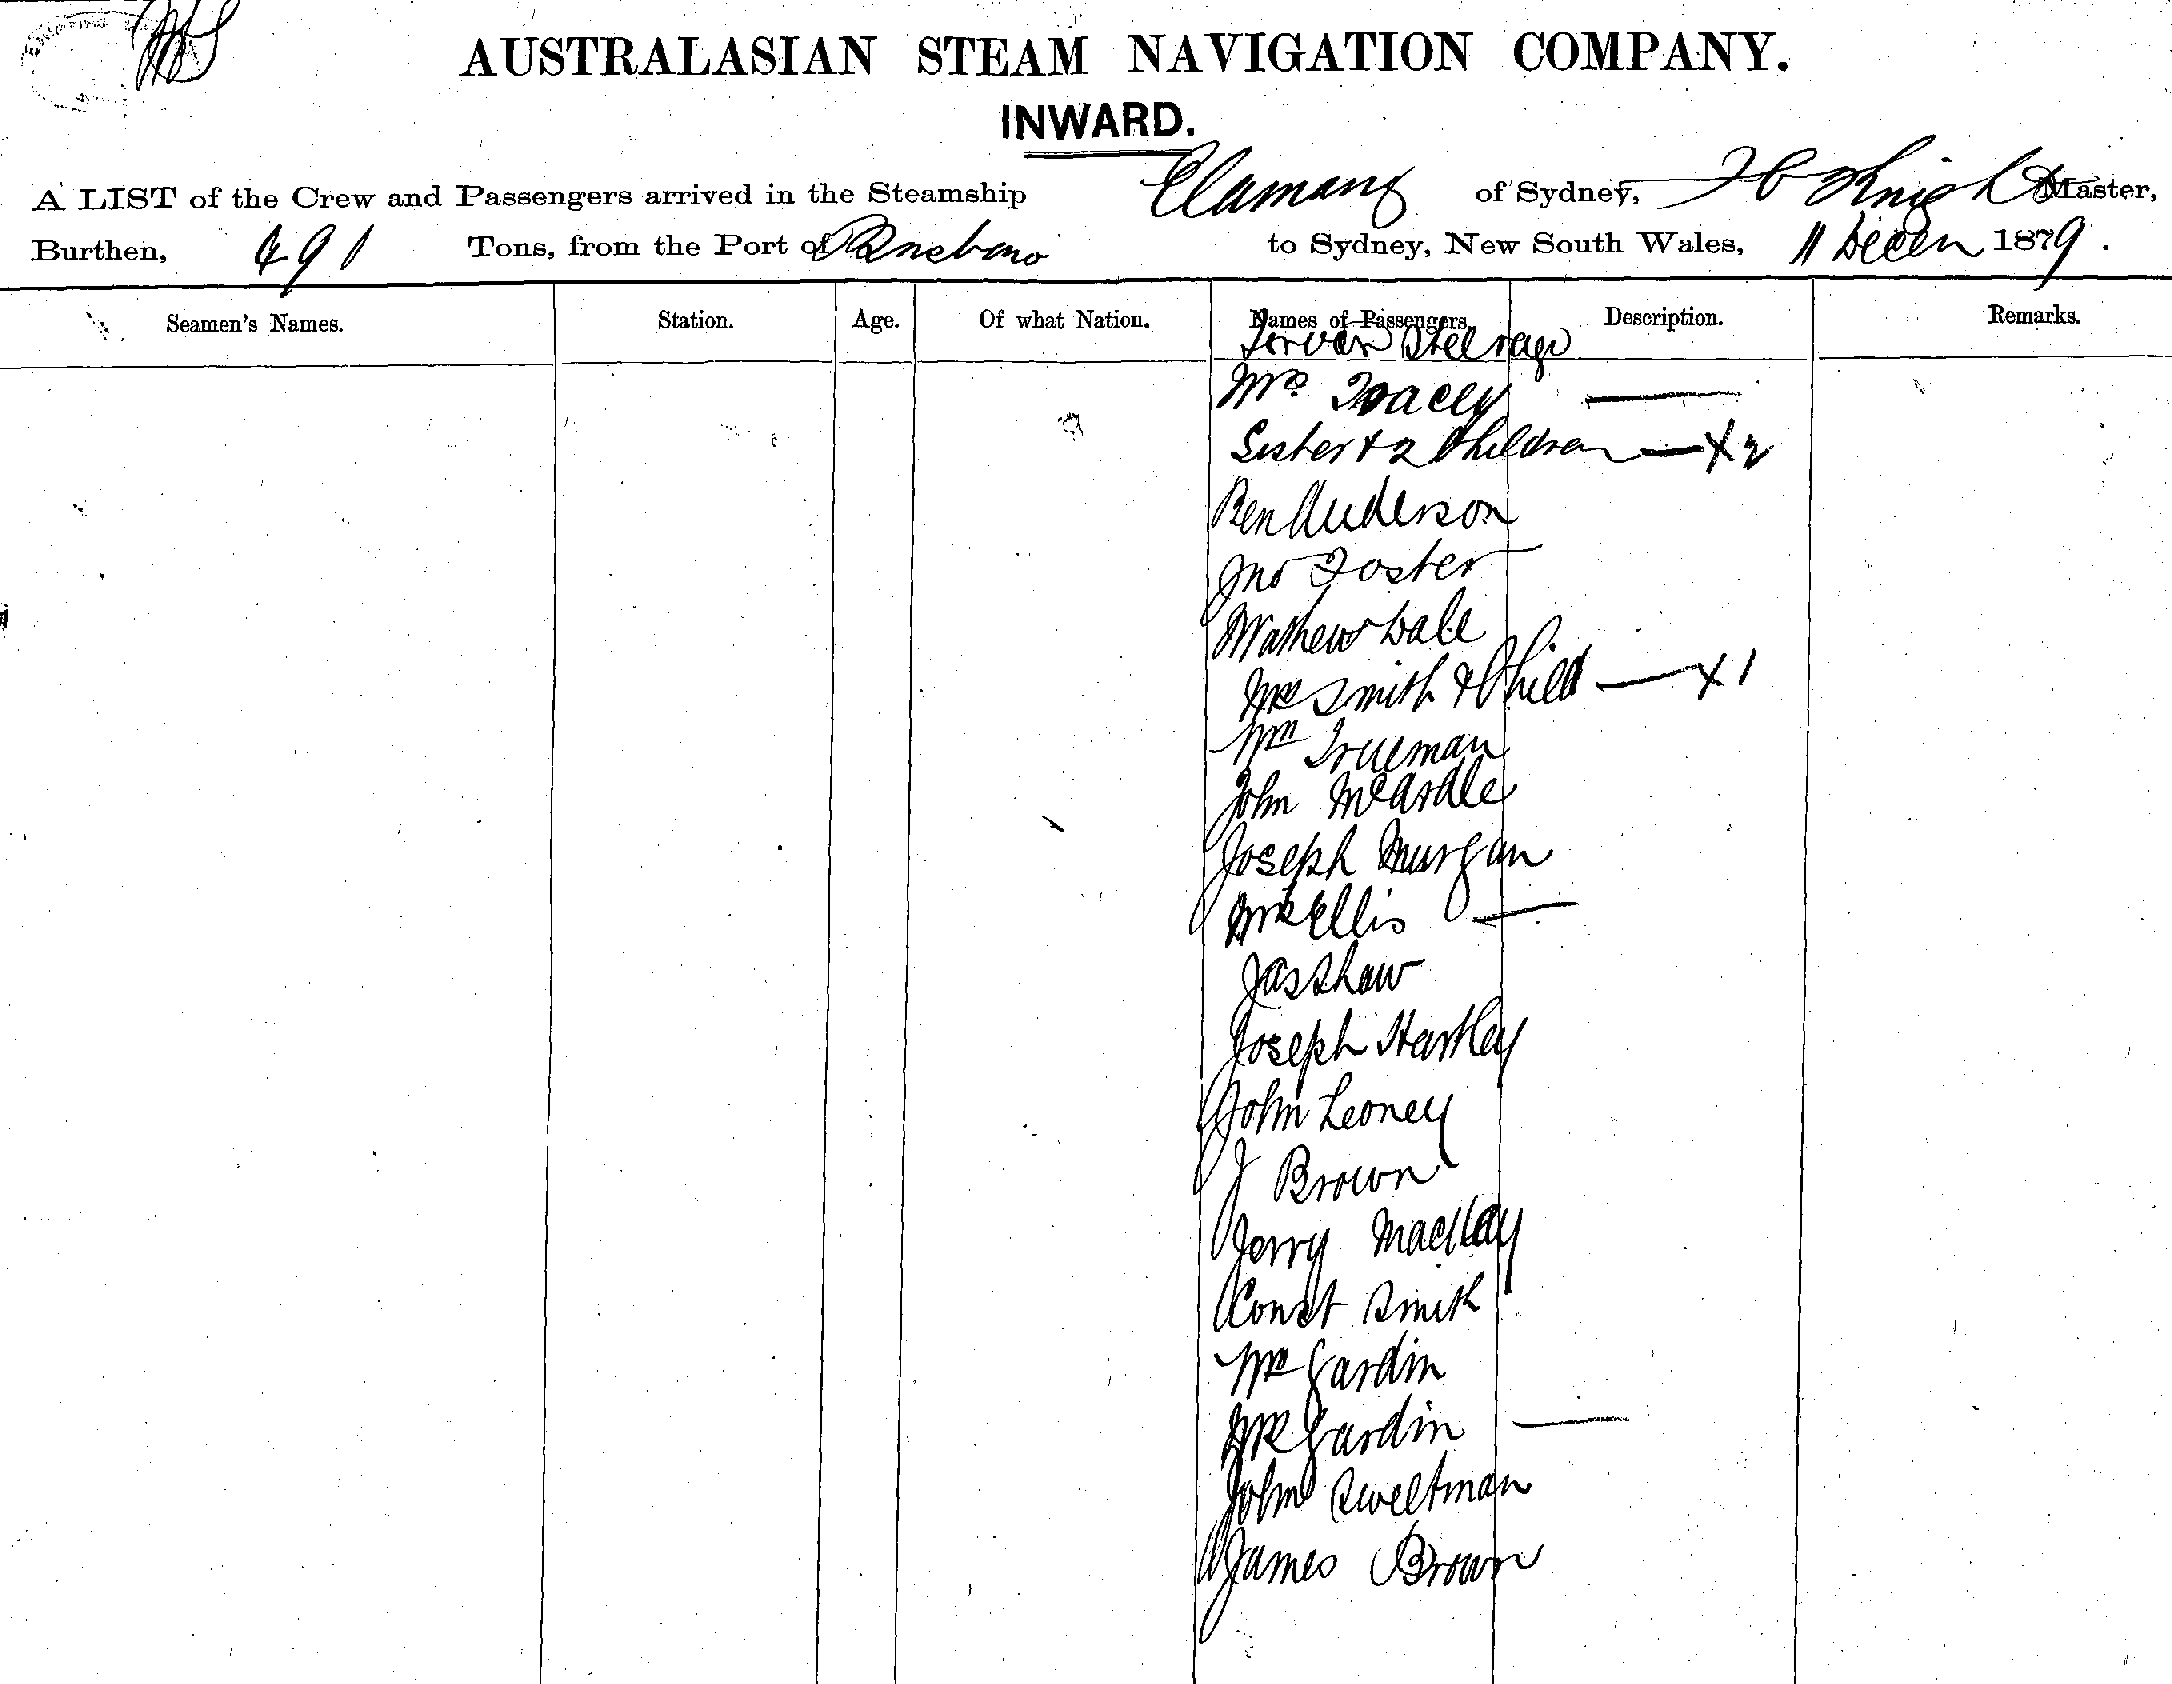 AUSTRALASIAN STEAM NAVIGATION COMPANY.
INWARD.
A LIST of the Crew and Passengers arrived in the Steamship Elamang of Sydney, Knight Master,
Burthen, 491 Tons, from the Port of to Sydney, New South Wales, 11 Decem 1879.
Seamen's Names. Station. Age. Of what Nation. Names of Passengers Description. Remarks.
Steerage
Mrs Tracey
Sister & 2 Children — X 2
Ben Anderson
Jno Foster
Mathew Dale
Mrs Smith & Child — X 1
Wm Trueman
John McArdle
Joseph Murgan
Mrs Ellis
Jas Shaw
Joseph Hartley
John Leoney
J Brown
Jerry Macklay
Const Smith
Mr Gardin
Mrs Gardin
John Sweetman
James Brown